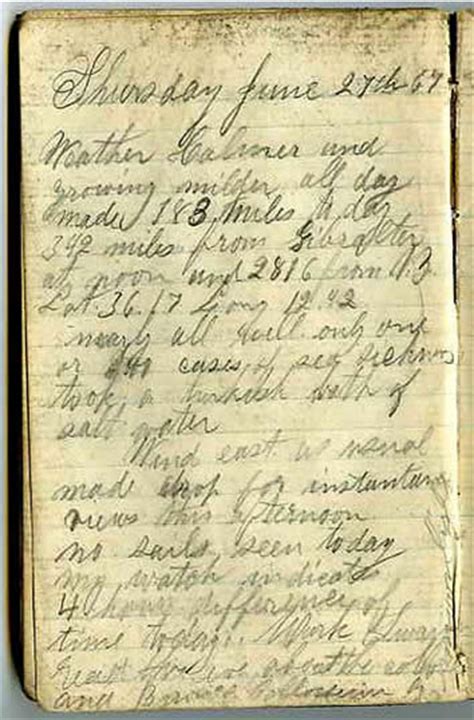 Thursday June 27th 67
Weather Calmer and
growing milder all day
made 183 miles to day
342 miles from Gibralter
at noon and 2816 from N.Y.
Lat. 36.17 Long 12.42
nearly all well only one
or two cases of sea sickness
took a turkish bath of
salt water
Wind east as usual
made drop for instantan
views this afternoon
no sails seen today
my watch indicate
4 hours difference of
time today. Mark
about the
and